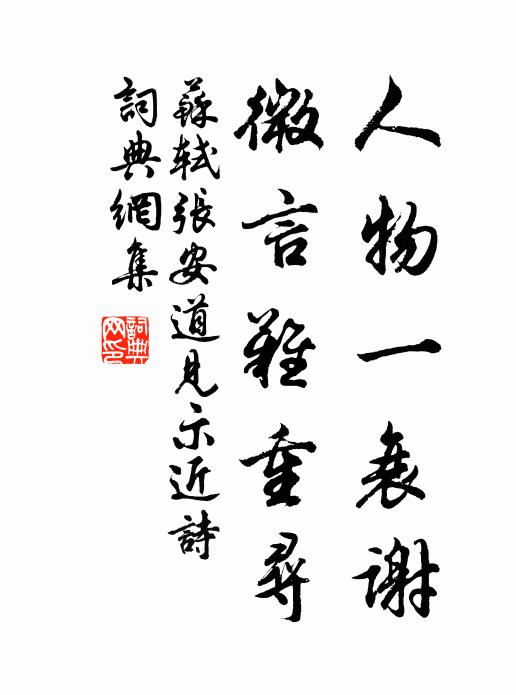 人物一衰謝
微言難重尋
蘇軾張安道見示近詩
詞典網集
詞典
网印